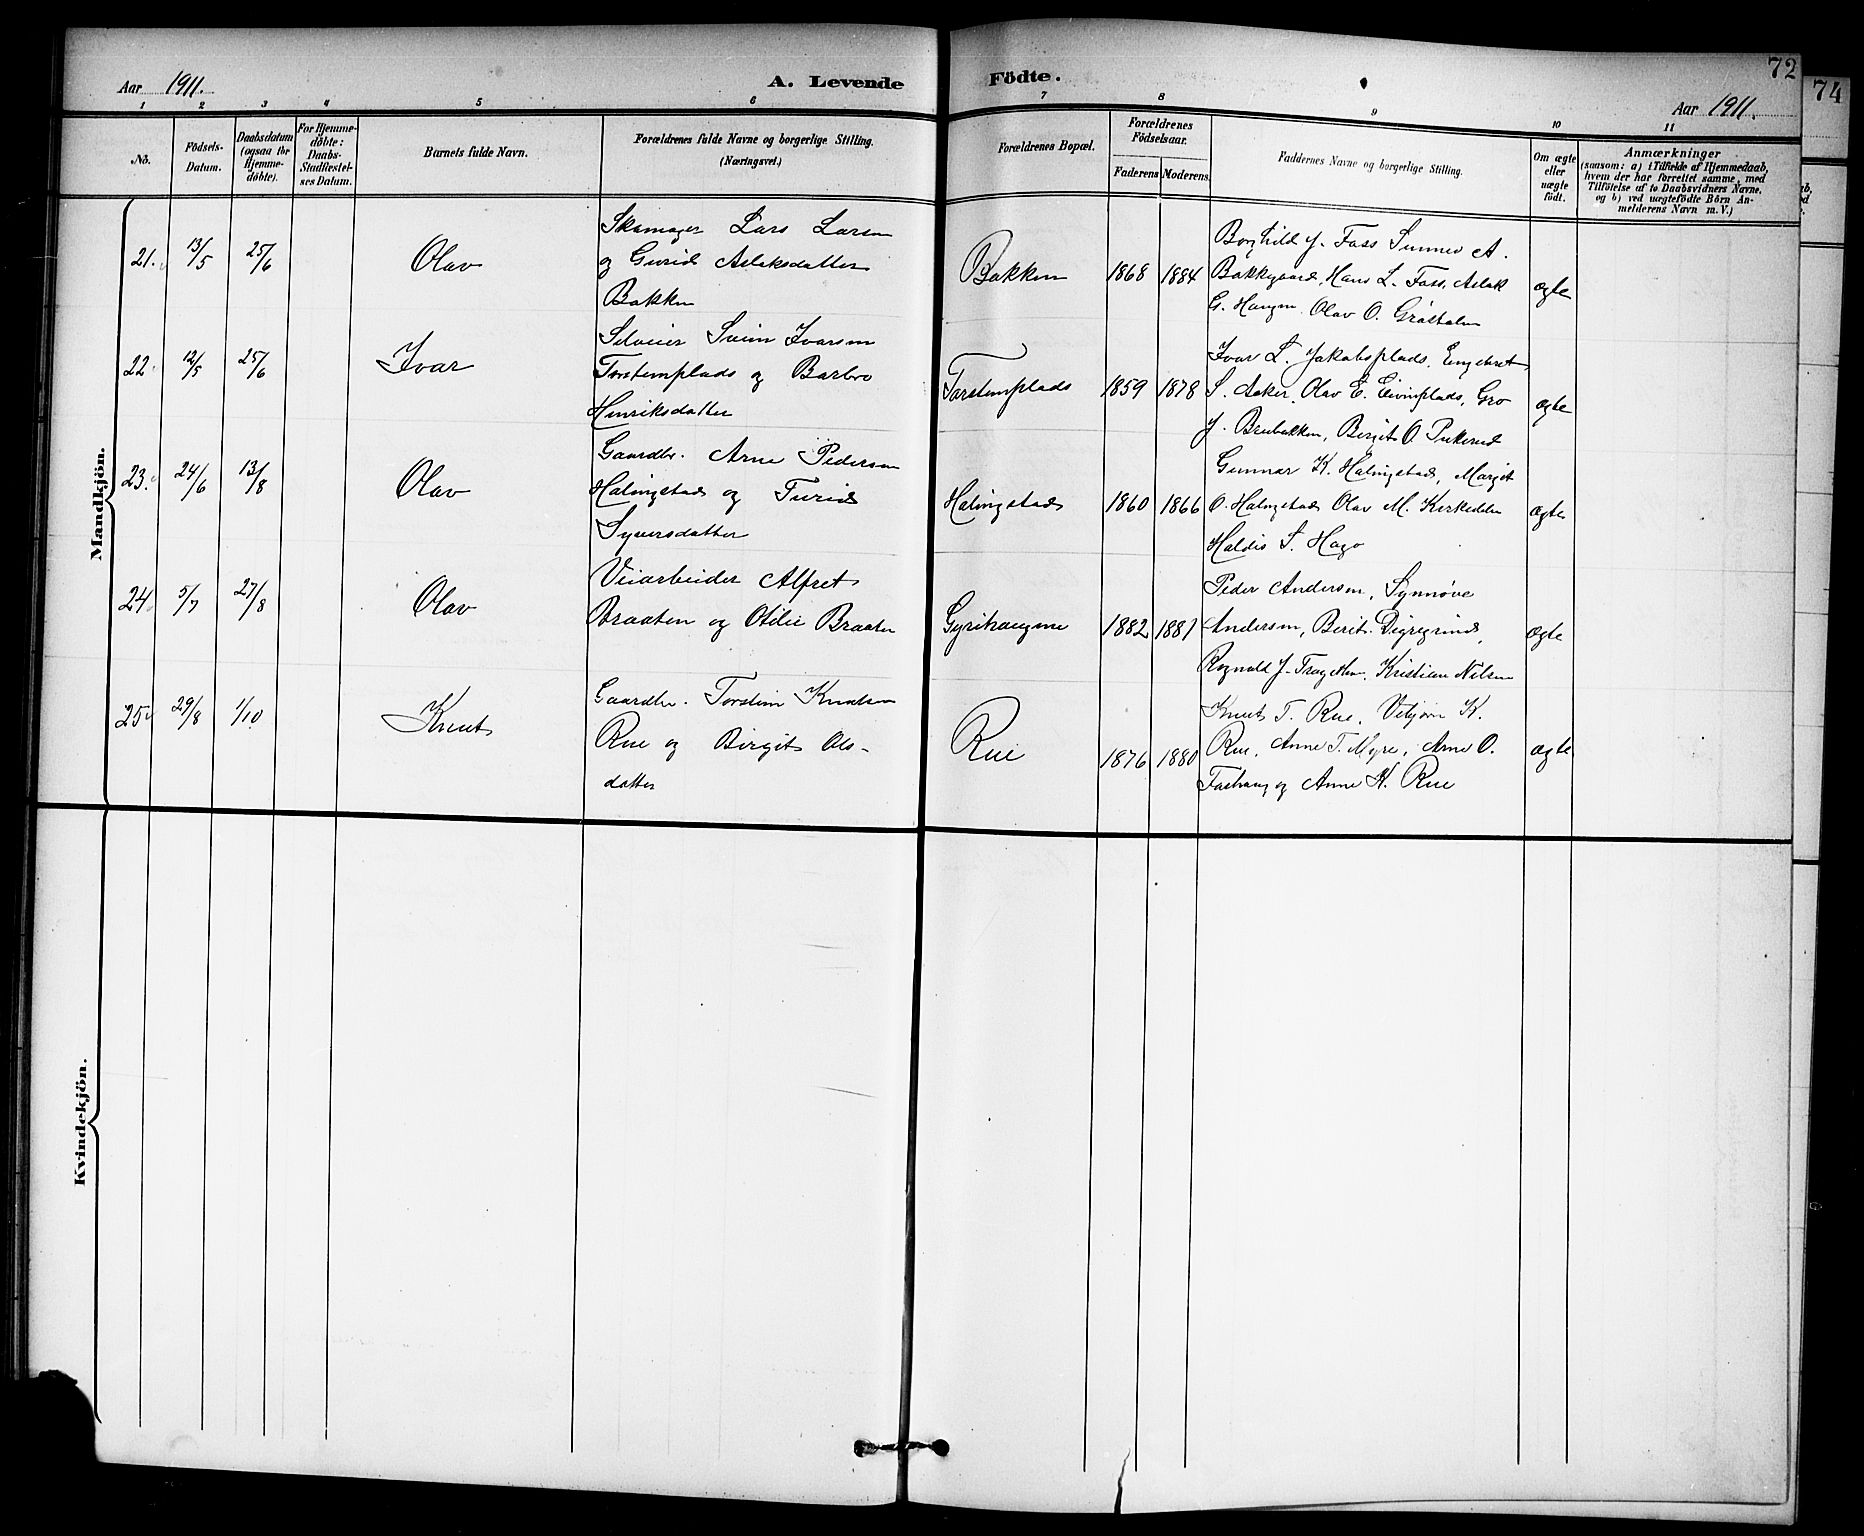 72
74
Aar 1911.
A. Levende Födte.
Aar 1911.
1 2 3 4 5 6 7 8 9 10 11
No.
Födsels-
Datum.
Daabsdatum
(ogsaa for
Hjemme-
döbte).
For Hjemme-
döbte:
Daabs-
Stadfæstel-
ses Datum.
Barnets fulde Navn.
Forældrenes fulde Navne og borgerlige Stilling.
(Næringsvei.)
Forældrenes Bopæl.
Forældrenes
Födselsaar.
Faderens Moderens.
Faddernes Navne og borgerlige Stilling.
Om ægte
eller
uægte
födt.
Anmærkninger
(saasom: a) i Tilfælde af Hjemmedaab,
hvem der har forrettet samme, med
Tilföielse af to Daabsvidners Navne,
og b) ved uægtefödte Börn An-
melderens Navn m. V.)
Mandkjön.
21. 13/5 25/6 Olav
Skomager Lars Larsen
og Gurid Aslaksdatter
Bakken
Bakken 1868 1884
Borghild J. Foss Sunnev A.
Bakkegaard, Hans L. Foss, Aslak
G. Haugen Olav O. Grøthalen
ægte
22. 12/5 25/6 Ivar
Svein Ivarsen
Torsteinplads og Barbro
Henriksdatter
Torsteinplads 1859 1878
Ivar L. Jakobsplads, Engebret
S. Asker, Olav E. Eivinplads, Gro
J. Brubakken, Bergit O. Pukerud
ægte
23. 24/6 13/8 Olav
Gaardbr. Arne Pedersen
Halingstad og Turid
Syversdatter
Halingstad 1860 1866
Gunnar K. Halingstad, Margit
O. Halingstad Olav M. Kirkedelen
Haldis S. Haga
ægte
24. 5/7 27/8 Olav
Veiarbeider Alfred
Braaten og Otilie Braaten
Gyrihaugene 1882 1881
Peder Andersen, Synnøve
Andersen, Berit Digregrind,
Ragnvald J. Kristian Nilsen
ægte
25. 29/8 1/10 Knut
Gaardbr. Torstein Knutsen
Rue og Birgit Ols-
datter
Rue 1876 1880
Knut T. Rue, Vebjørn K.
Rue, Anne T. Myre, Arne O.
og Anne K. Rue
ægte
Kvindekjön.